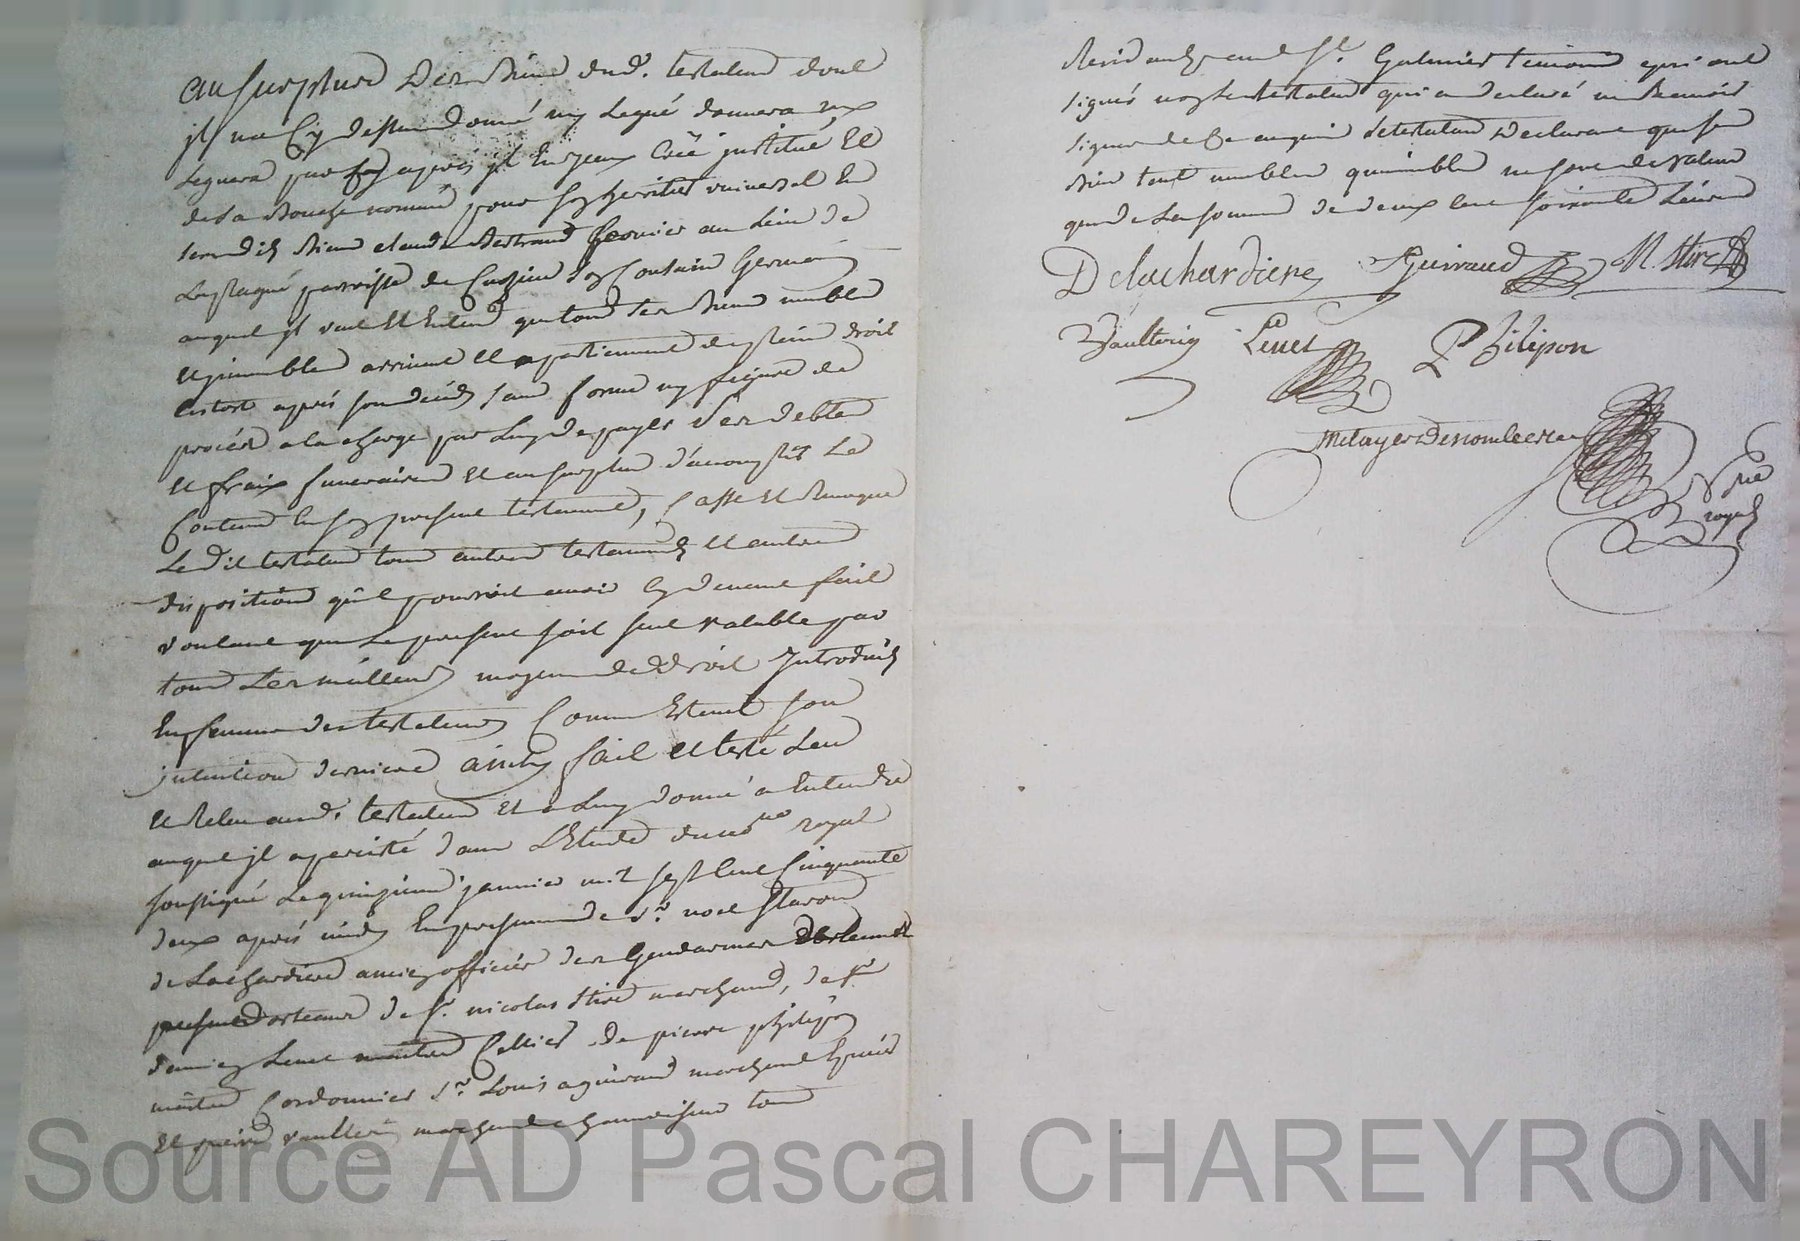 au surplus Des Biens dud.t testateur dont
il na Cy dessus donné ny Legué donnera ny
Leguera par Cy apres il En a Créé institué Et
de sa Bouche nommé pour son heritier universel En
sesd. Biens claude Bertrand fermier au Lieu de
parroisse de Cuzieu son Cousin Germain
auquel il veut Et Entend que tous ses Biens meubles
et immeubles arrivent Et apartiennent de plein droit
aprés son deceds sans forme ny figure de
procés a la charge par Luy de payer Ses debtes
et fraix funeraires Et au surplus d'acomplir Le
Contenu En son present testament, Casse Et Revoque
Le Dit testateur tous autres testaments Et autres
dispositions qu'il pourroit avoir Cy devant fait
voulant que Le present soit seul valable par
tous Les meilleurs moyens de Droit Introduits
En faveur des testateurs Comm' Etant son
intention derniere ainsy fait Et testé Leu
et Releu aud.t testateur Et a Luy donné a Entendre
auquel il a persisté dans L'Etude du no.re royal
soussigné Le quinzieme janvier mil sept Cent Cinquante
deux aprés midy En presence de s.r noel Staron
de Lachardiere ancien officier des Gendarmes
de s.r nicolas Hire marchand, de s.r
damien Levet maitre Cellier de pierre philipon
maitre Cordonnier s.r Louis aguiraud marchand Epicier
Et pierre vaulterin marchand chanvreseur tous
Residants en s.t Galmier temoins qui ont
signés non Le testateur qui a declaré ne Scavoir
signer de Ce enquis Le testateur Declarant que ses
Biens tant meubles qu'imeubles ne sont de valeur
que de La somme de deux cent soixante Livres
Delachardiere Aguiraud N. Hire
Vaulterin Levet P Philipon
Metayer Descombes
No.re
royal
Source AD Pascal CHAREYRON